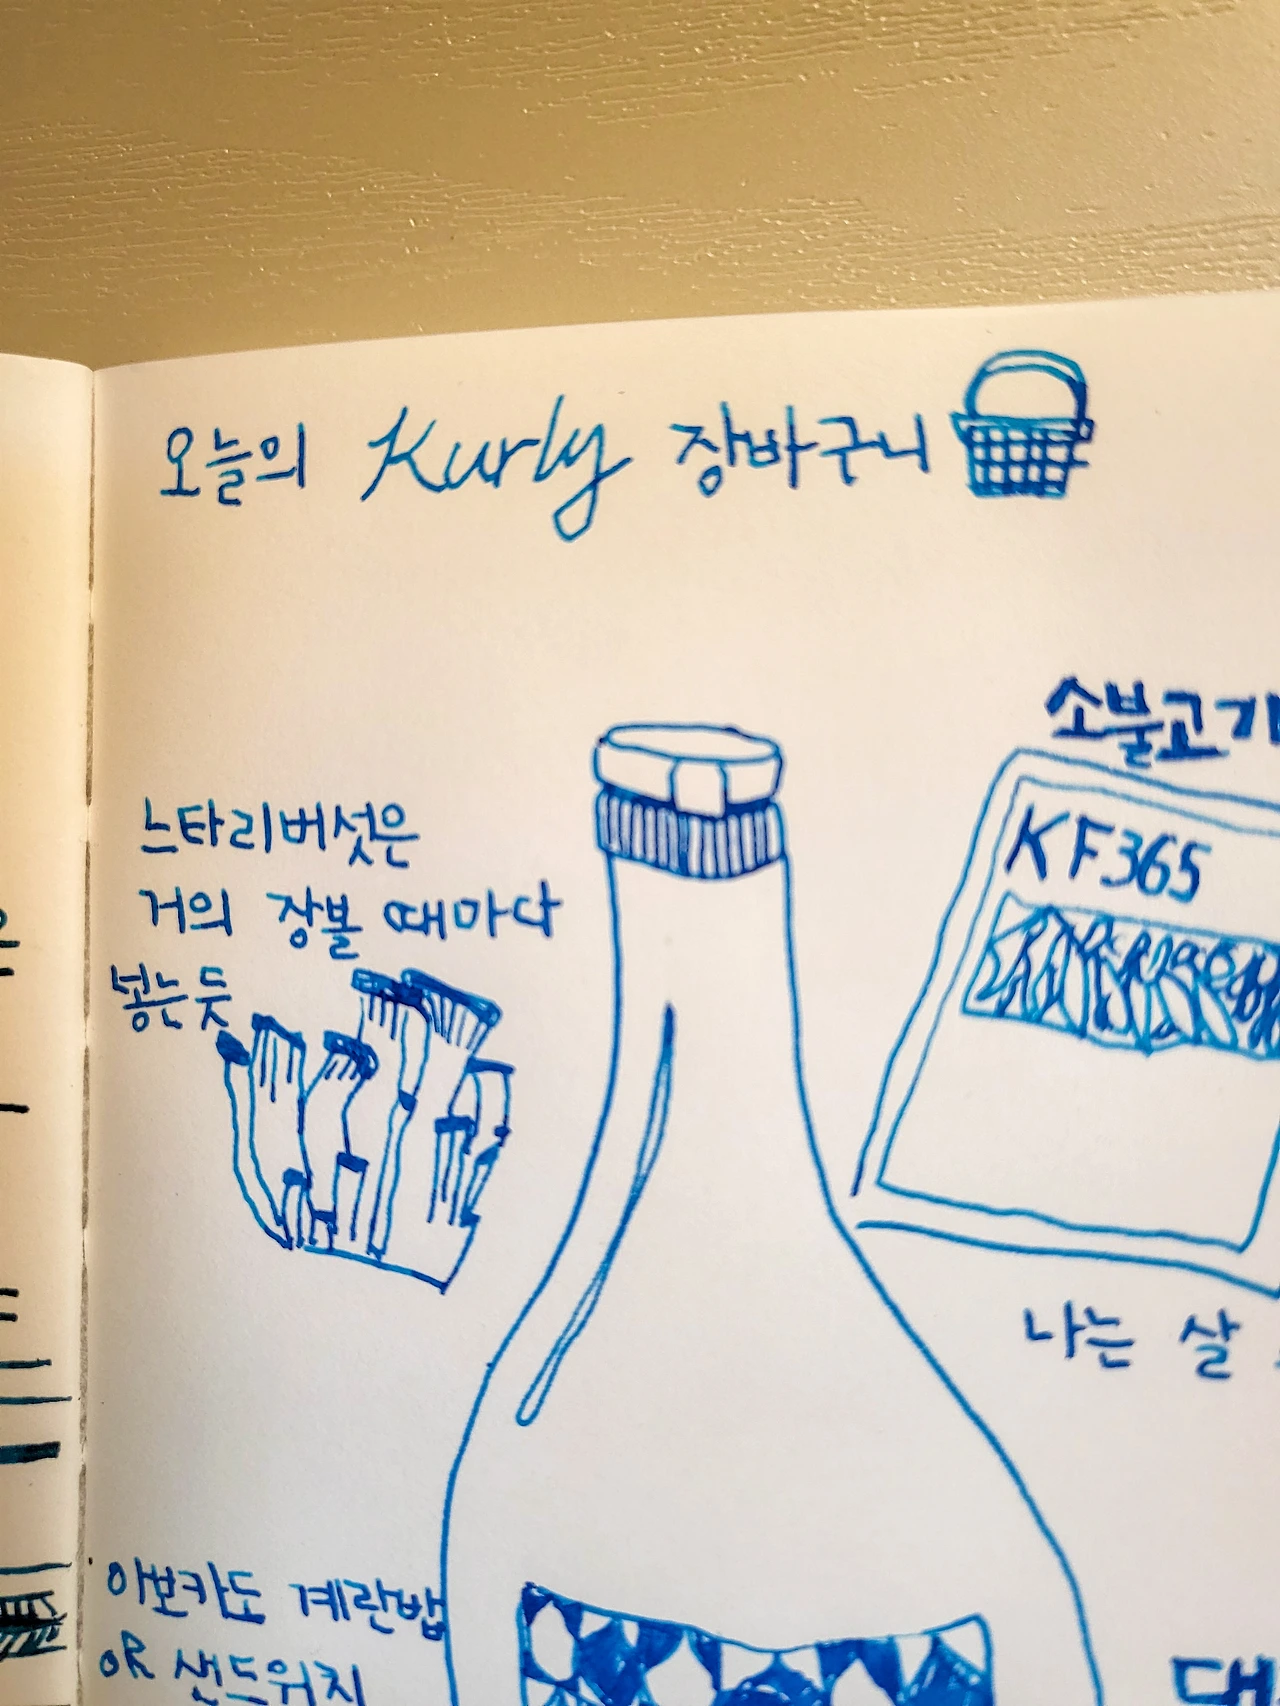 오늘의 Kurly 장바구니
소불고기
KF365
느타리버섯은
거의 장볼 때마다
넣는 듯
나는 살
아보카도 계란밥
OR 샌드위치